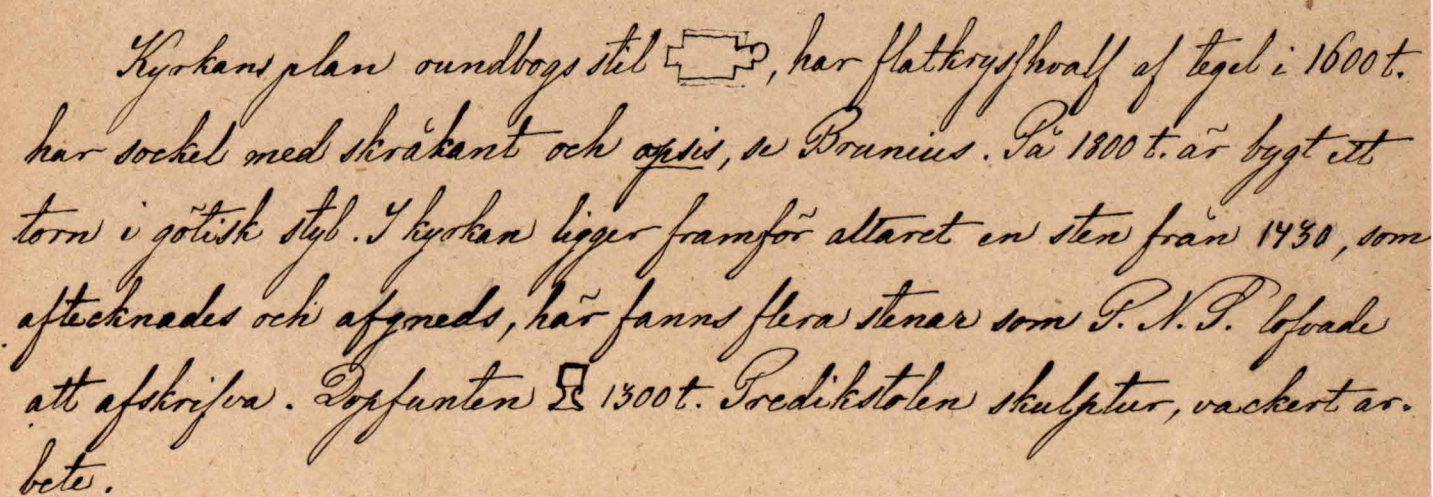 Kyrkans plan rundbogs stil, har flatkrysshvalf af tegel i 1600 t.
har sockel med skråkant och apsis, se Brunius. På 1800 t. är bygt ett
torn i götisk styl. I kyrkan ligger framför altaret en sten från 1430, som
aftecknades och afgneds, här fanns flera stenar som P. N. P. lofvade
att afskrifva. Dopfunten 1300 t. Predikstolen skulptur, vackert ar-
bete.